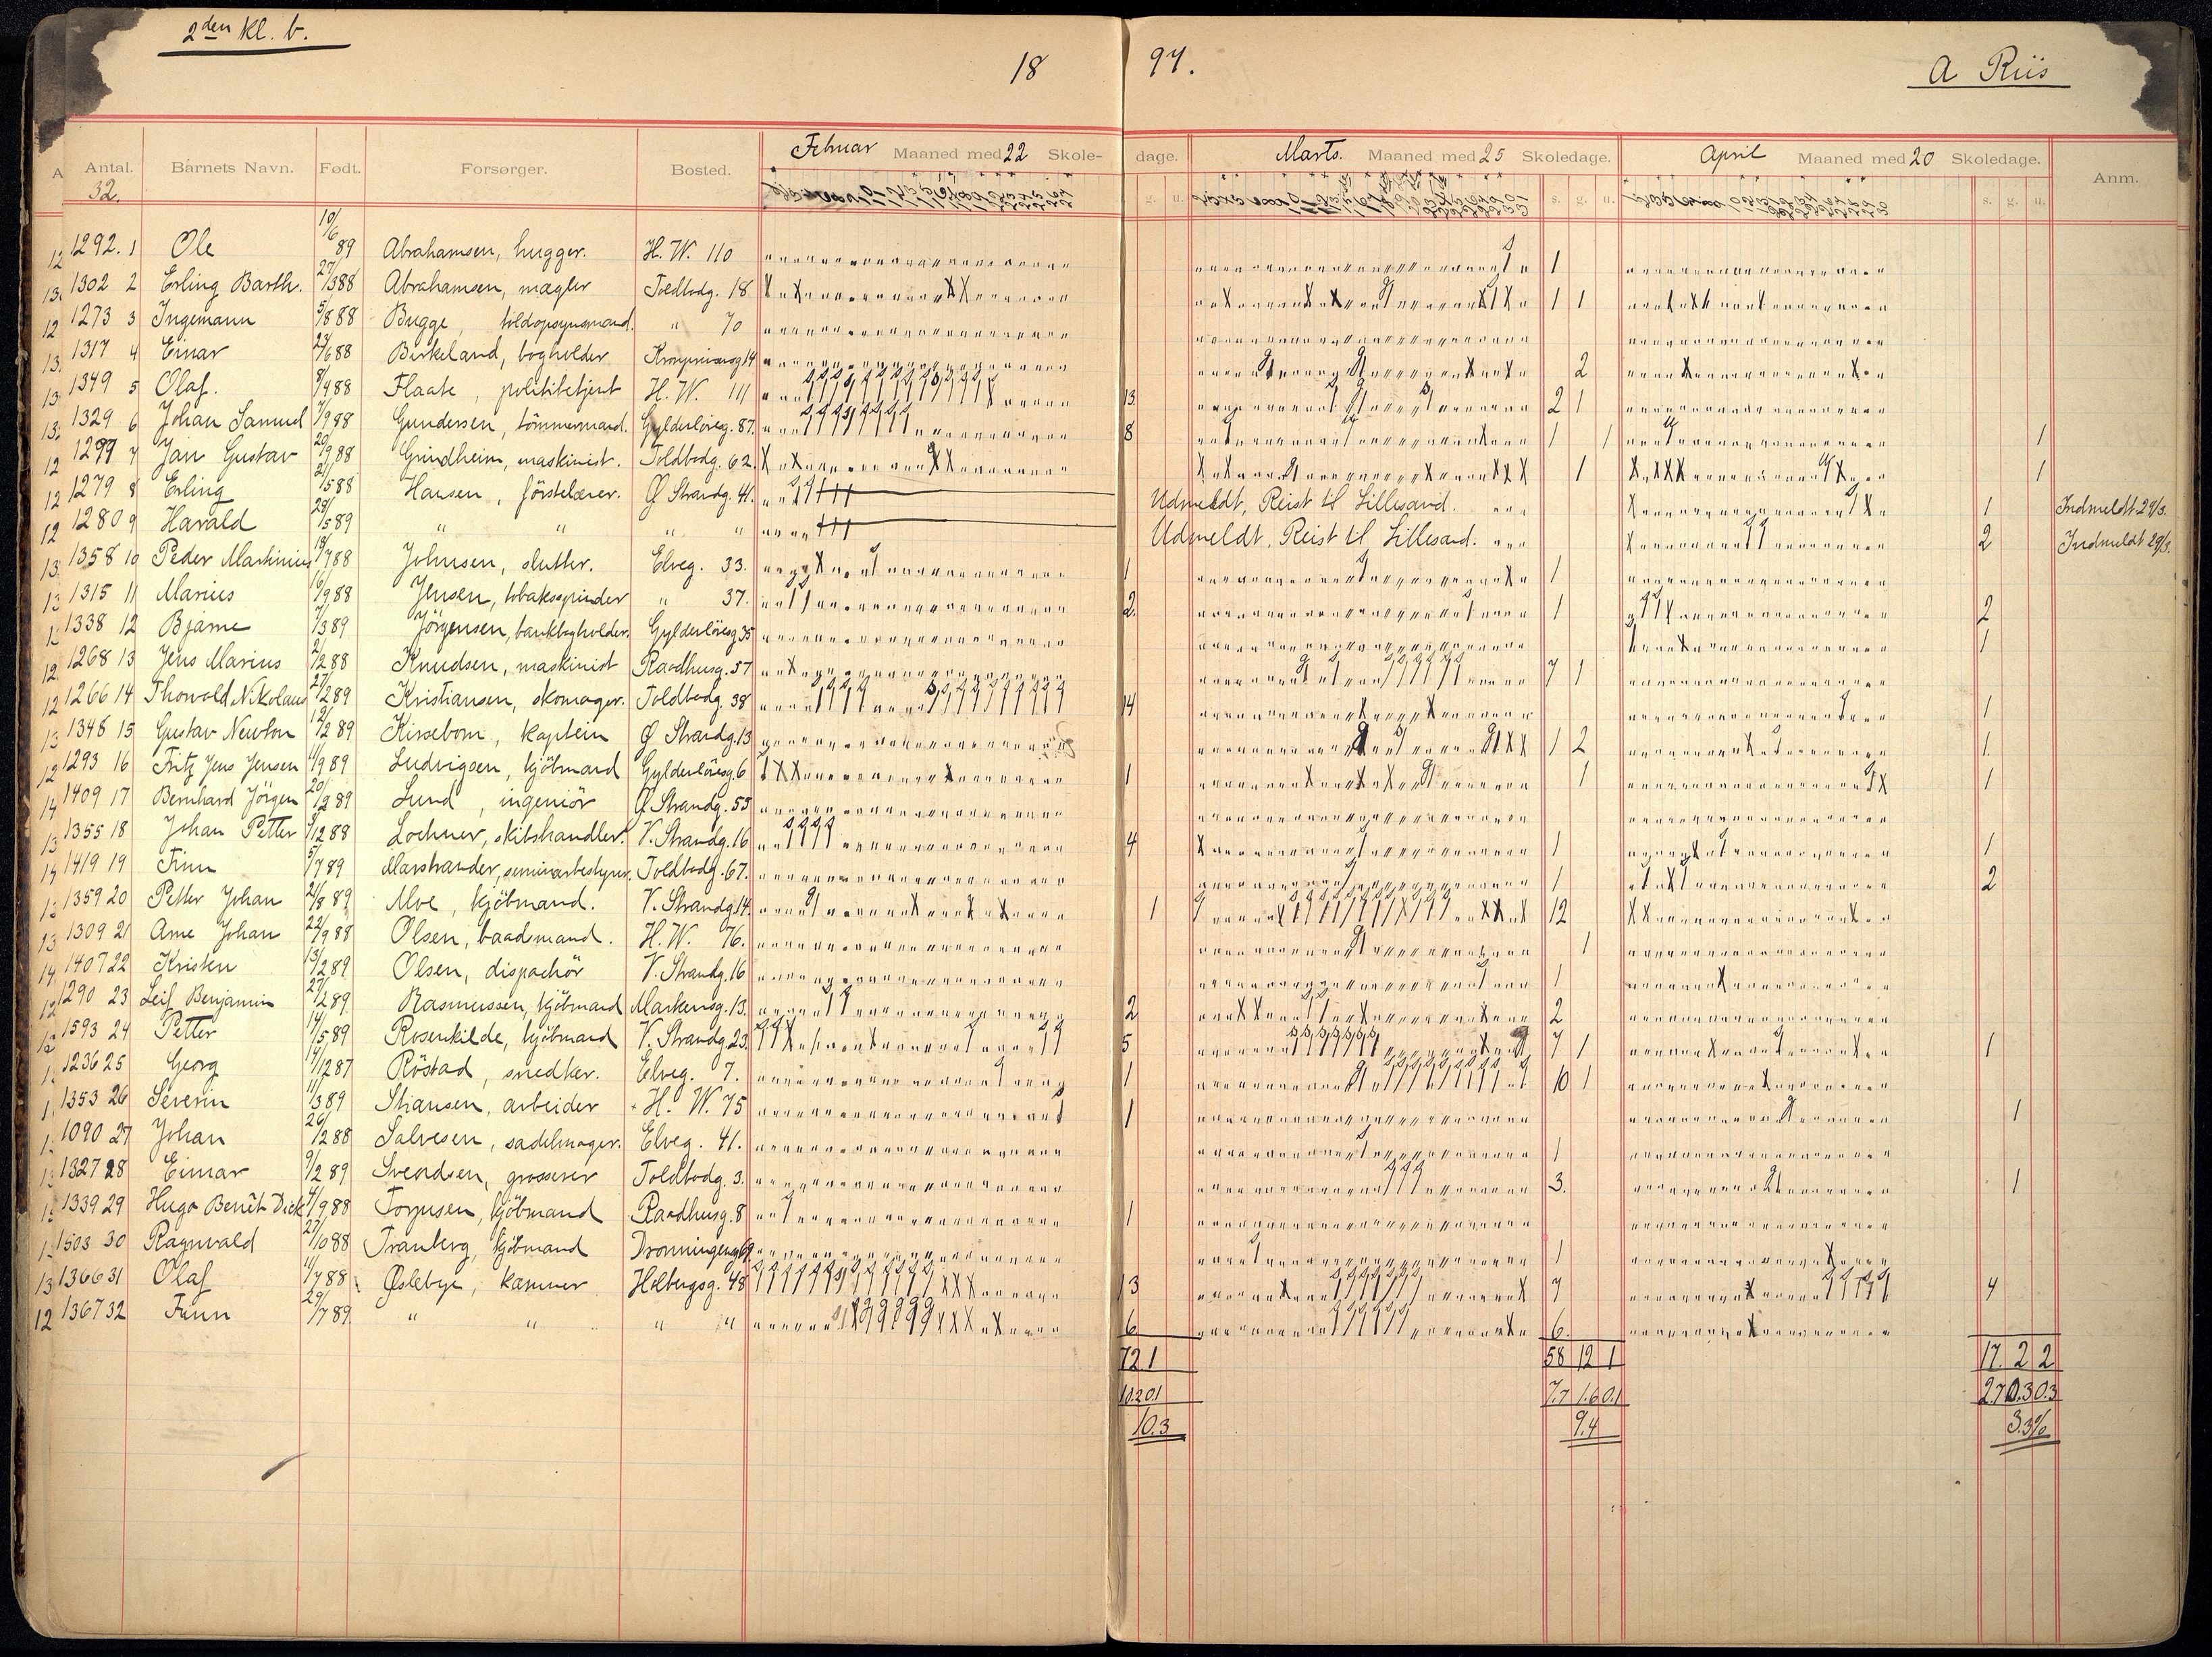 2den Kl. b.
18 97.
A Riis
Antal. Barnets Navn. Født. Forsørger. Bosted. Februar Maaned med 22 Skole- dage. Marts. Maaned med 25 Skoledage. April Maaned med 20 Skoledage. Anm.
32.
g. u. s. g. u. s. g. u.
1292. 1 Ole 10/6 89 Abrahamsen, hugger. H. W. 110 1
1302 2 Erling Barth. 27/3 88 Abrahamsen, mægler Toldbodg. 18 1 1
1273 3 Ingemann 5/8 88 Bugge, toldopsynsmand. " 70
1317 4 Einar 88 Birkeland, bogholder Kronprinsensg 14 2
1349 5 Olaf. 8/4 88 Flaate, politibetjent H. W. 111 13. 2 1
1329 6 Johan Samuel 7/9 88 Gundersen, tömmermand. Gyldenlövesg. 87. 8 1 1 1
1299 7 Jan Gustav 20/9 88 Grindheim, maskinist. Toldbodg. 62. 1 1
1279 8 Erling 21/5 88 Hansen, förstelærer. Ø Strandg. 41. Udmeldt, Reist til Lillesand. 1 Indmeldt 29/3.
1280 9 Harald 28/5 89 " " " " Udmeldt. Reist til Lillesand. 2 Indmeldt 29/3.
1358 10 Peder Martinius 18/7 88 Johnsen, slutter. Elveg. 33. 1 1
1315 11 Marius 16/9 88 Jensen, tobaksspinder " 37. 2. 1 2
1338 12 Bjarne 7/3 89 Jörgensen, bankbogholder. Gyldenlövesg 35 1
1268 13 Jens Marius 2/2 88 Knudsen, maskinist Raadhusg. 57 7 1
1266 14 Thorvald Nikolaus 27/2 89 Kristiansen, skomager. Toldbodg. 38 14 1
1348 15 Gustav Newton 12/2 89 Kirsebom, kaptein Ø Strandg. 13 1 2 1.
1293 16 Fritz Jens Jensen 11/9 89 Ludvigsen, kjöbmand Gyldenlövesg 6 1 1 1
1409 17 Bernhard Jörgen 20/2 89 Lund, ingeniör Ø Strandg. 53
1355 18 Johan Petter 9/12 88 Lochner, skibshandler. V. Strandg. 16 4 1 1
1419 19 Finn 5/7 89 Marstrander, seminarbestyrer. Toldbodg. 67. 1 2
1359 20 Petter Johan 21/8 89 Moe, kjöbmand. V. Strandg 14. 1 12
1309 21 Arne Johan 22/9 88 Olsen, baadsmand. H. W. 76. 1
1407 22 Kristen 13/2 89 Olsen, dispachör V. Strandg. 16 1
1290 23 Leif Benjamin 27/2 89 Rasmussen, kjöbmand Markensg. 13. 2 2
1593 24 Petter 14/5 89 Rosenkilde, kjöbmand V. Strandg. 23. 5 7 1 1
1236 25 Georg 14/12 87 Röstad, snedker. Elveg. 7. 1 10 1
1353 26 Severin 11/3 89 Stiansen, arbeider H. W. 75 1 1
1090 27 Johan 26/12 88 Salvesen, sadelmager. Elveg. 41. 1
1327 28 Einar 9/2 89 Svendsen, grosserer Toldbodg. 3. 3. 1
1339 29 Hugo Benêt Dick 4/9 88 Torjusen, kjöbmand Raadhusg. 8 1
1503 30 Ragnvald 27/10 88 Tranberg, kjöbmand Dronningensg 69. 1
1366 31 Olaf 11/7 88 Øslebye, kæmner Holbergsg. 48 13 7 4
1367 32 Finn 29/7 89 " " " " 6 6.
72 1 58 12 1 17. 2 2
10.2 0.1 7.7 1.6 0.1 2.7 0.3 0.3
10.3 9.4 3.3%